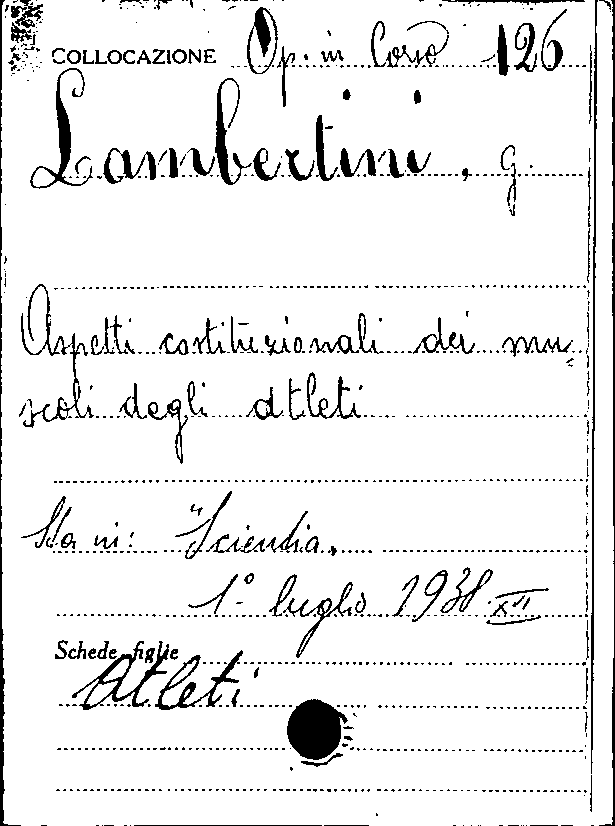 COLLOCAZIONE Op. in Corso 126
Lambertini, G.
Aspetti costituzionali dei mu-
scoli degli atleti
Sta in: "Scientia,
1° luglio 1938 XVI
Schede figlie
Atleti